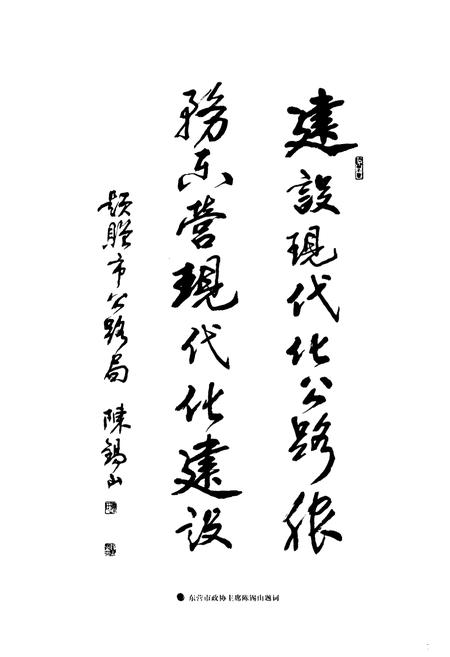 建設現代化公路服
務东營現代化建设
题贈市公路局 陳錫山
东营市政协主席陈锡山题词